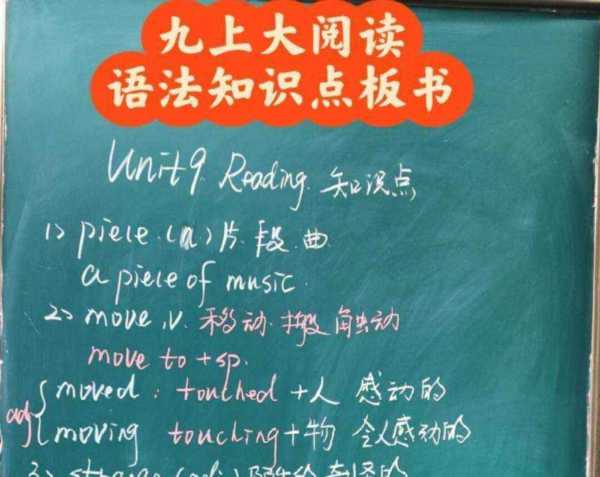 九上大阅读
语法知识点板书
Unit9 Reading 知识点
1> piece (n) 片.段.曲
a piece of music.
2> move .v. 移动.搬.触动
move to + sp.
adj { moved : touched + 人 感动的
moving touching + 物 令人感动的
3> strange (adj) 陌生的 奇怪的